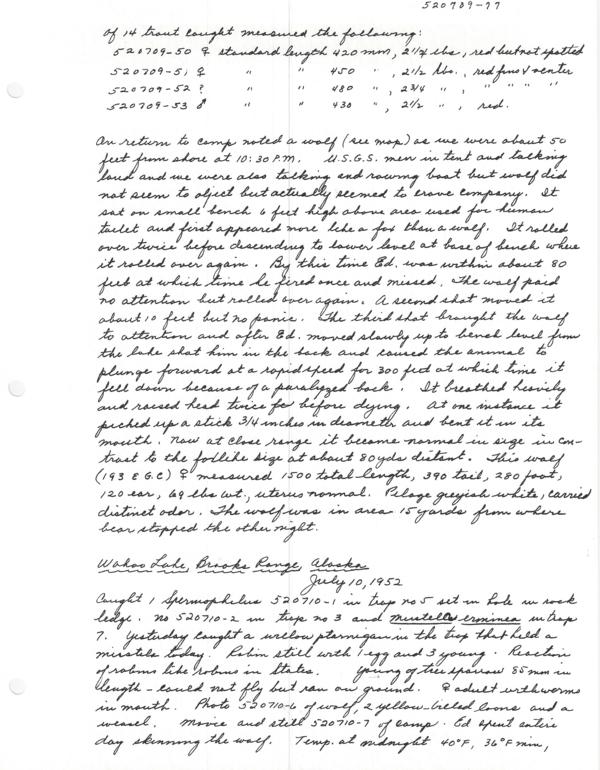 520709-77
Of 14 trout caught measured the following:
520709-50 ♀ standard length 420 mm, 2 1/4 lbs, red but not spotted
520709-51 ♀ " " 450 " , 2 1/2 lbs., red fins & venter
520709-52 ? " " 480 " , 2 3/4 " , " " "
520709-53 ♂ " " 430 " , 2 1/2 " , red.
On return to camp noted a wolf (see map) as we were about 50
feet from shore at 10:30 P.M. U.S.G.S. men in tent and talking
loud and we were also talking and rowing boat but wolf did
not seem to object but actually seemed to crave company. It
sat on small bench 6 feet high above area used for human
toilet and first appeared more like a fox than a wolf. It rolled
over twice before descending to lower level at base of bench where
it rolled over again. By this time Ed. was within about 80
feet at which time he fired once and missed. The wolf paid
no attention but rolled over again. A second shot moved it
about 10 feet but no panic. The third shot brought the wolf
to attention and after Ed. moved slowly up to bench level from
the lake shot him in the back and caused the animal to
plunge forward at a rapid speed for 300 feet at which time it
fell down because of a paralyzed back. It breathed heavily
and raised head twice before dying. At one instance it
picked up a stick 3/4 inches in diameter and bent it in its
mouth. Now at close range it became normal in size in con-
trast to the foxlike size at about 80 yds distant. This wolf
(193 E G.C) ♀ measured 1500 total length, 390 tail, 280 foot,
120 ear, 69 lbs wt., uterus normal. Pelage greyish white, carried
distinct odor. The wolf was in area 15 yards from where
bear stopped the other night.
Wahoo Lake, Brooks Range, Alaska
July 10, 1952
Caught 1 Spermophilus 520710-1 in trap no 5 set in hole in rock
ledge. No 520710-2 in trap no 3 and Mustela erminea in trap
7. Yesterday caught a willow ptarmigan in the trap that held a
mustela today. Robin still with 1 egg and 3 young. Reaction
of robins like robins in States. Young of tree sparrow 85 mm in
length - could not fly but ran on ground. ♀ adult with worms
in mouth. Photo 520710-6 of wolf, 2 yellow-billed loons and a
weasel. Movie and still 520710-7 of camp. Ed spent entire
day skinning the wolf. Temp. at midnight 40°F, 36°F min,